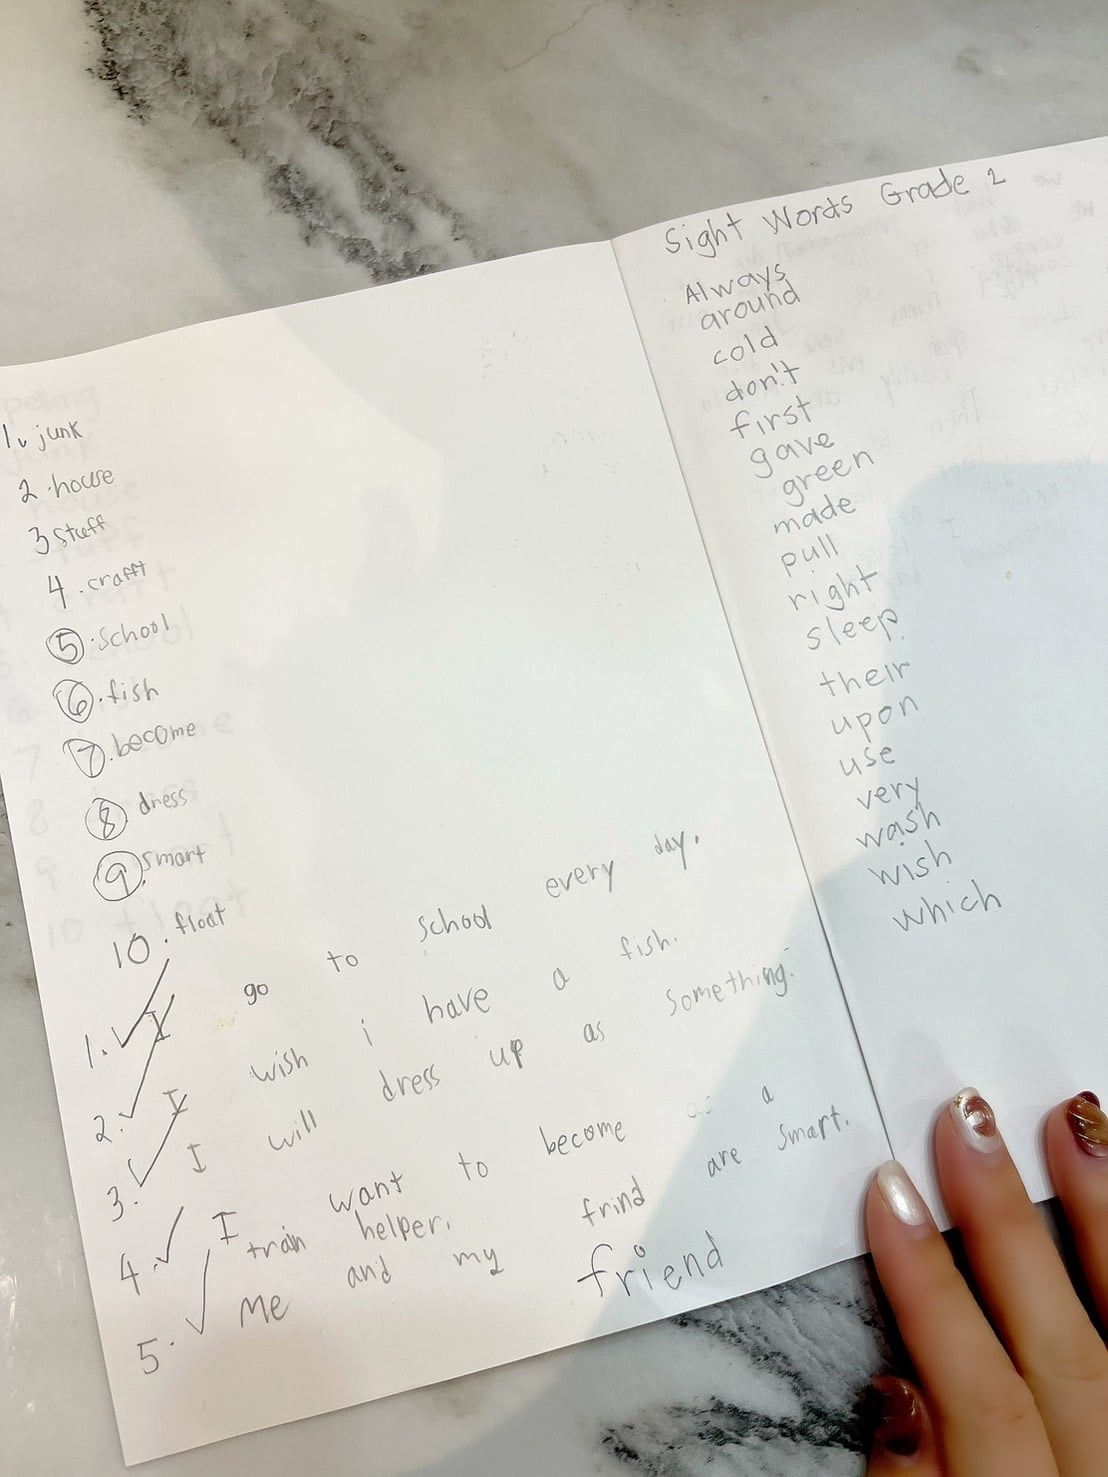 1. junk
2. house
3 stuff
4. crafft
5. school
6. fish
7. become
8 dress
9. smart
10. float
1. I go to school every day.
2. I wish i have a fish.
3. I will dress up as something.
4. I want to become as a
train helper.
5. Me and my frind are smart.
friend
Sight Words Grade 2
Always
around
cold
don't
first
gave
green
made
pull
right
sleep
their
upon
use
very
wash
wish
which